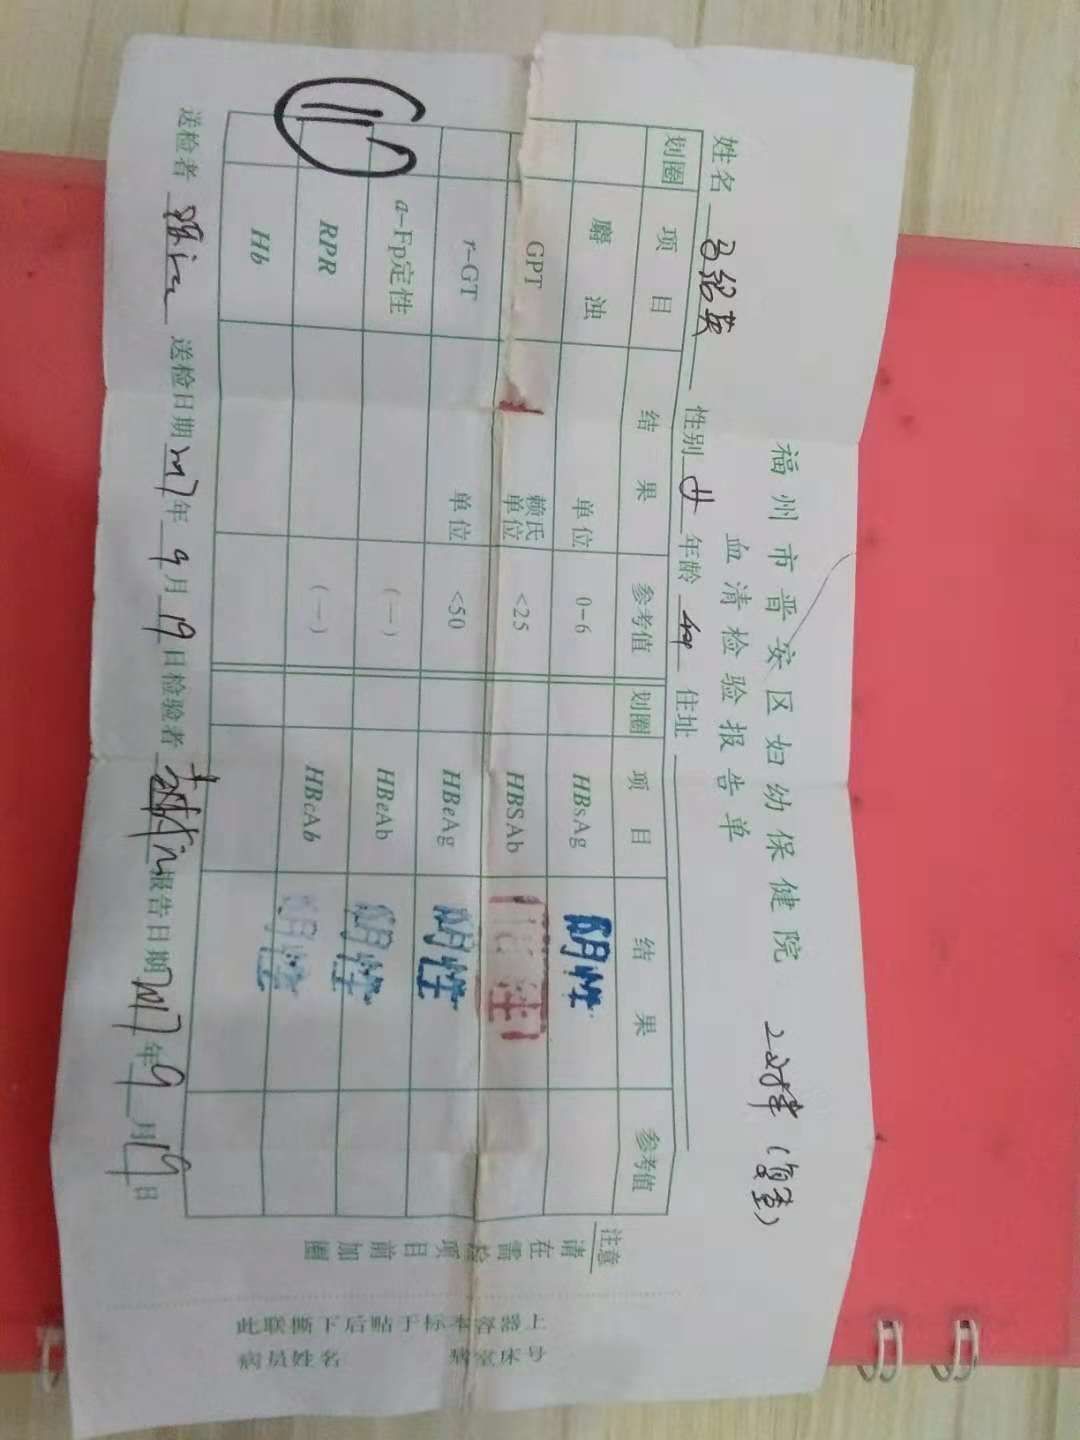 福州市晋安区妇幼保健院
血清检验报告单
2对半（复查）
姓名 马绍英 性别 女 年龄 住址
划圈 项目 结果 参考值 划圈 项目 结果 参考值
麝浊 单位 0-6 HBsAg 阴性
GPT 赖氏单位 <25 HBSAb 阳性
r-GT 单位 <50 HBeAg 阴性
a-Fp定性 (一) HBeAb 阴性
RPR (一) HBcAb 阴性
Hb
送检者 送检日期 年 9 月 19 日 检验者 报告日期 年 9 月 19 日
注意
请在需检项目前加圈
此联撕下后贴于标本容器上
病员姓名 病室床号